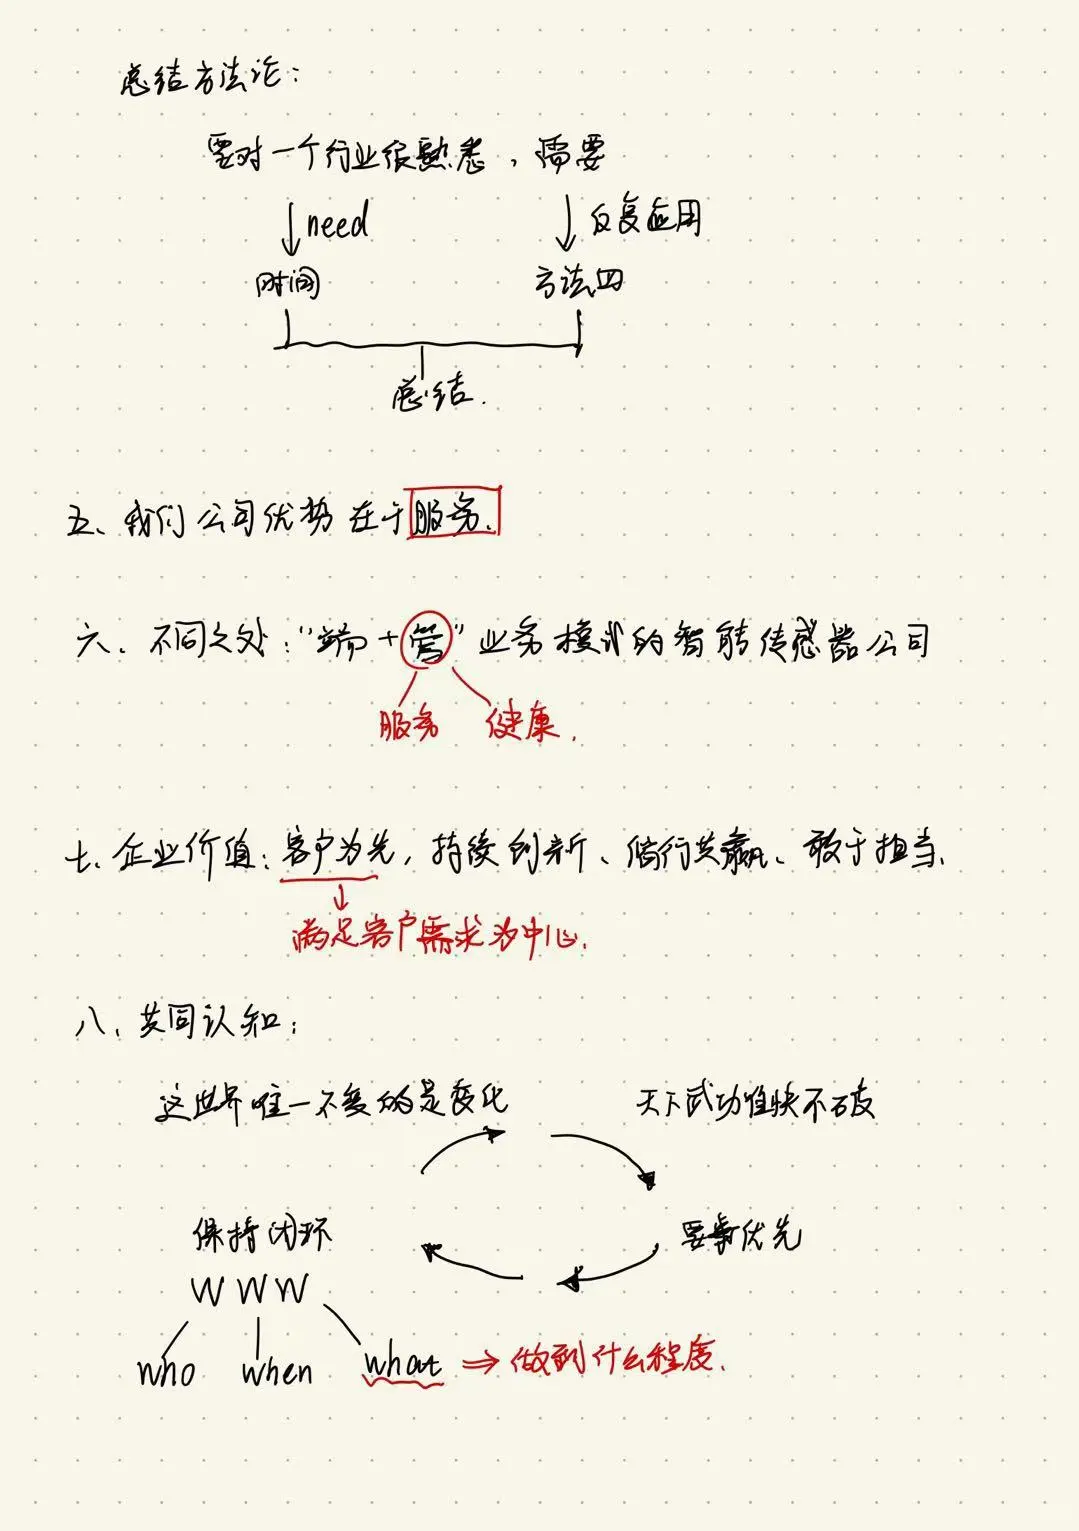 总结方法论：
要对一个行业很熟悉，需要
need 反复应用
时间 方法四
总结.
五、我们公司优势在于服务.
六、不同之处："端+管"业务模式的智能传感器公司
服务 健康.
七、企业价值：客户为先，持续创新、偕行共赢、敢于担当.
满足客户需求为中心.
八、共同认知：
这世界唯一不变的是变化 天下武功唯快不破
保持闭环 要事优先
W W W
who when what ⇒ 做到什么程度.